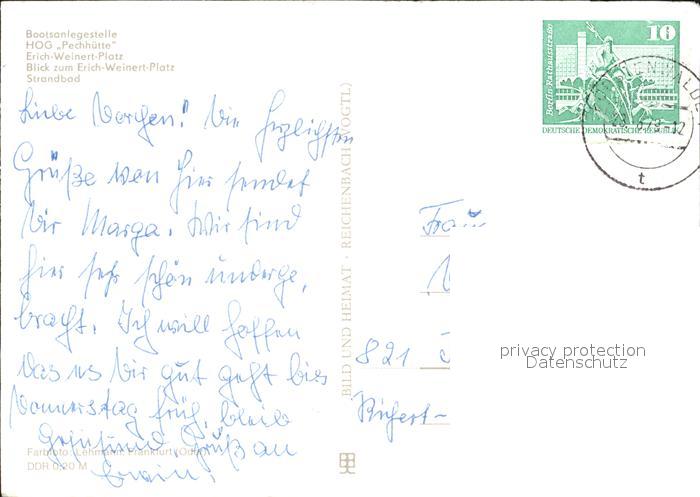 Bootsanlegestelle
HOG „Pechhütte"
Erich-Weinert-Platz
Blick zum Erich-Weinert-Platz
Strandbad
10
Berlin, Rathausstraße
DEUTSCHE DEMOKRATISCHE REPUBLIK
t
Liebe
Die herzlichsten
Grüße von hier sendet
Dir Marga. Wir sind
hier sehr schön underge,
bracht. Ich will hoffen
das es Dir gut geht bis
Donnerstag früh, bleib
gesund Gruß an
Erwin!
Frau
821
BILD UND HEIMAT · REICHENBACH (VOGTL)
Farbfoto: Lehmann, Frankfurt (Oder)
DDR 0,20 M
privacy protection
Datenschutz